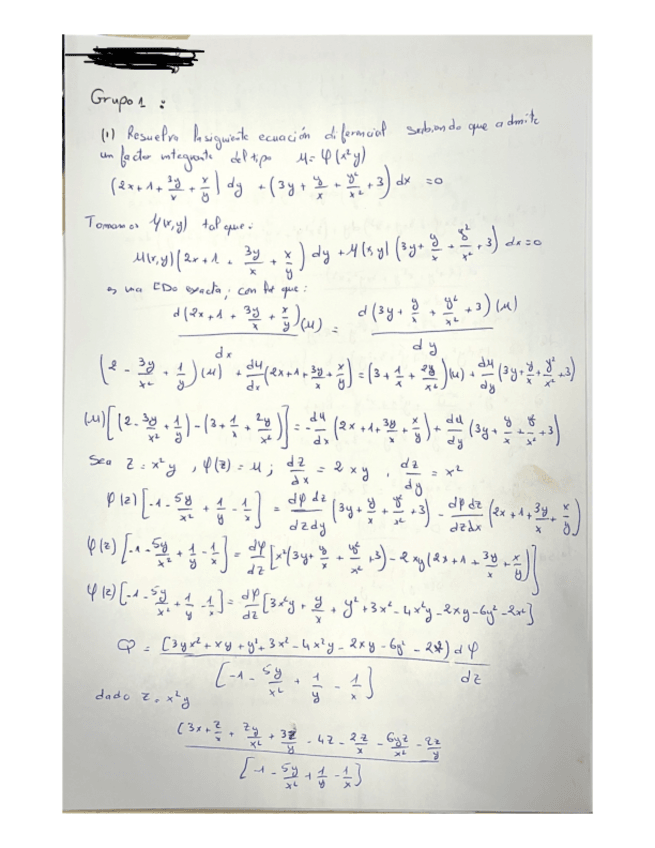 Grupo 1 :
(1) Resuelva la siguiente ecuación diferencial sabiendo que admite
un factor integrante del tipo μ = φ(x²y)
(2x + 1 + 3y/x + x/y) dy + (3y + y/x + y²/x² + 3) dx = 0
Tomamos μ(x,y) tal que:
μ(x,y)(2x + 1 + 3y/x + x/y) dy + μ(x,y)(3y + y/x + y²/x² + 3) dx = 0
es una EDO exacta; con lo que:
d(2x + 1 + 3y/x + x/y)(μ) / dx = d(3y + y/x + y²/x² + 3)(μ) / dy
(2 - 3y/x² + 1/y)(μ) + dμ/dx (2x + 1 + 3y/x + x/y) = (3 + 1/x + 2y/x²)(μ) + dμ/dy (3y + y/x + y²/x² + 3)
(μ)[(2 - 3y/x² + 1/y) - (3 + 1/x + 2y/x²)] = - dμ/dx (2x + 1 + 3y/x + x/y) + dμ/dy (3y + y/x + y²/x² + 3)
Sea z = x²y , φ(z) = μ ; dz/dx = 2xy , dz/dy = x²
φ(z) [-1 - 5y/x² + 1/y - 1/x] = dφ dz/dz dy (3y + y/x + y²/x² + 3) - dφ dz/dz dx (2x + 1 + 3y/x + x/y)
φ(z) [-1 - 5y/x² + 1/y - 1/x] = dφ/dz [x²(3y + y/x + y²/x² + 3) - 2xy(2x + 1 + 3y/x + x/y)]
φ(z) [-1 - 5y/x² + 1/y - 1/x] = dφ/dz [3x²y + y/x + y² + 3x² - 4x²y - 2xy - 6y² - 2x²]
φ = [3yx² + xy + y² + 3x² - 4x²y - 2xy - 6y² - 2x²] / [-1 - 5y/x² + 1/y - 1/x] dφ/dz
dado z = x²y
[3x + z/x + zy/x² + 3z/y - 4z - 2z/x - 6yz/x² - 2z/y] / [-1 - 5y/x² + 1/y - 1/x]